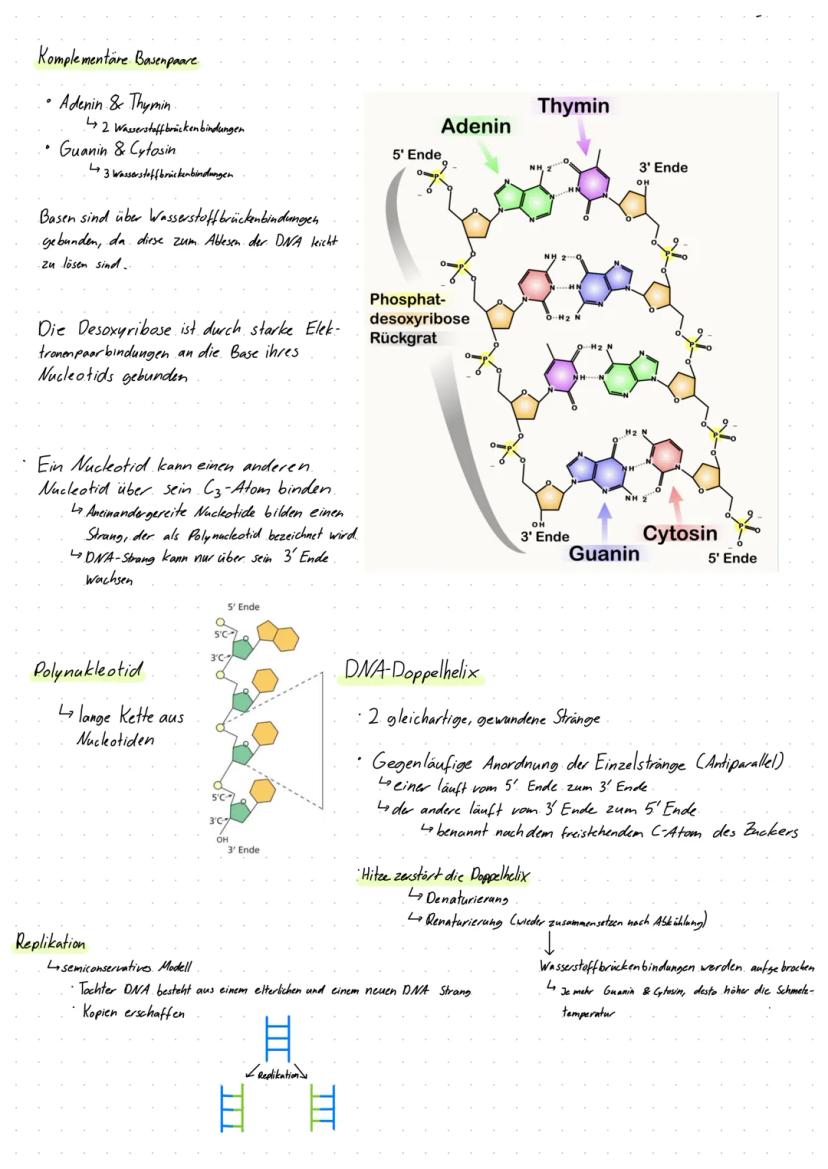 Komplementäre Basenpaare
• Adenin & Thymin
↳ 2 Wasserstoffbrückenbindungen
• Guanin & Cytosin
↳ 3 Wasserstoffbrückenbindungen
Basen sind über Wasserstoffbrückenbindungen
gebunden, da diese zum Ablesen der DNA leicht
zu lösen sind.
Die Desoxyribose ist durch starke Elek-
tronenpaarbindungen an die Base ihres
Nucleotids gebunden
· Ein Nucleotid kann einen anderen
Nucleotid über sein C₃-Atom binden
↳ Aneinandergereite Nuckotide bilden einen
Strang, der als Polynucleotid bezeichnet wird
↳ DNA-Strang kann nur über sein 3' Ende
wachsen
Thymin
Adenin
5' Ende
3' Ende
Phosphat-
desoxyribose
Rückgrat
3' Ende
Cytosin
Guanin
5' Ende
NH 2 O
HN
N
N
N
N
N
O
OH
O
O
P
O
NH 2 O
N HN
O H2 N
O H2 N
NH N
H2 N
NH N
NH 2 O
OH
Polynukleotid
↳ lange Kette aus
Nucleotiden
5' Ende
5'C
3'C
5'C
3'C
OH
3' Ende
DNA-Doppelhelix
· 2 gleichartige, gewundene Stränge
· Gegenläufige Anordnung der Einzelstränge (Antiparallel)
↳ einer läuft vom 5' Ende zum 3' Ende
↳ der andere läuft vom 3' Ende zum 5' Ende
↳ benannt nach dem freistehendem C-Atom des Zuckers
· Hitze zerstört die Doppelhelix
↳ Denaturierung
↳ Renaturierung (wieder zusammensetzen nach Abkühlung)
Wasserstoffbrückenbindungen werden aufgebrochen
↳ Je mehr Guanin & Cytosin, desto höher die Schmelz-
temperatur
Replikation
↳ semiconservatives Modell
· Tochter DNA besteht aus einem elterlichen und einem neuen DNA Strang
· Kopien erschaffen
Replikation